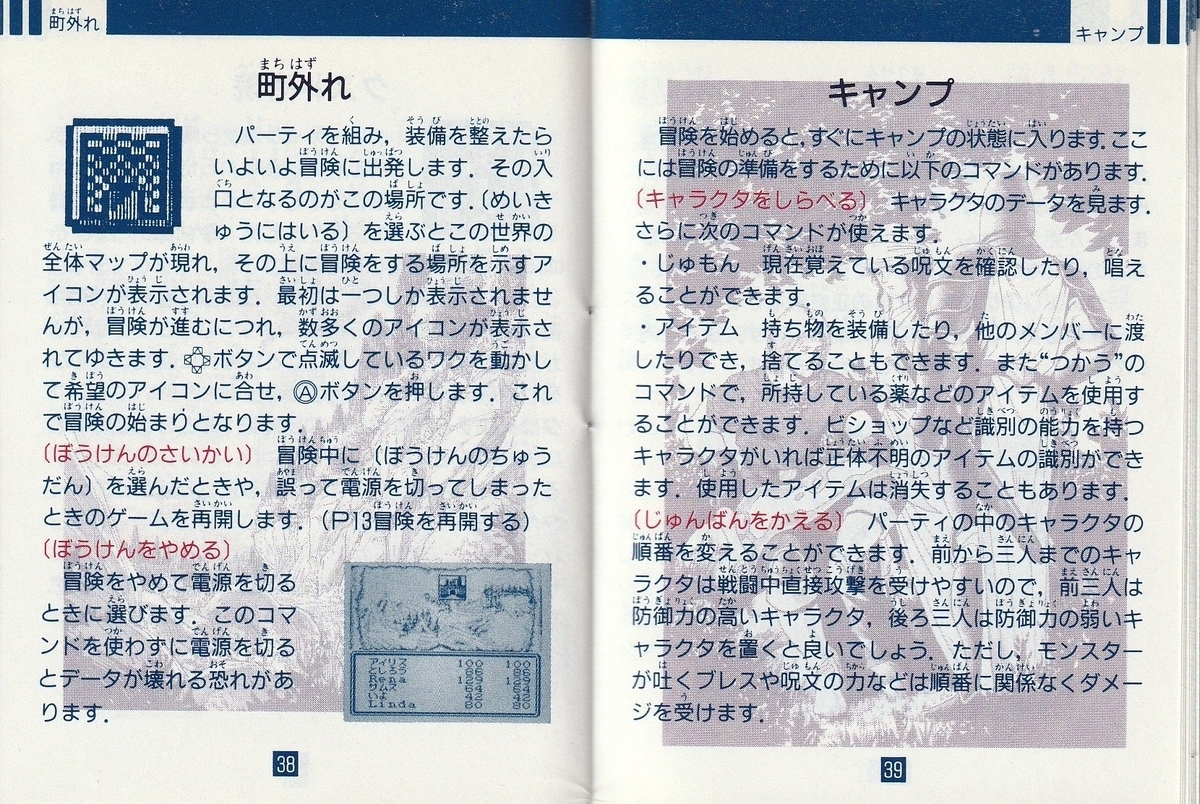 町外れ
町外れ
パーティを組み，装備を整えたら
いよいよ冒険に出発します．その入
口となるのがこの場所です．(めいき
ゅうにはいる) を選ぶとこの世界の
全体マップが現れ，その上に冒険をする場所を示すア
イコンが表示されます．最初は一つしか表示されませ
んが，冒険が進むにつれ，数多くのアイコンが表示さ
れてゆきます．ボタンで点滅しているワクを動かし
て希望のアイコンに合せ，Ⓐボタンを押します．これ
で冒険の始まりとなります．
(ぼうけんのさいかい) 冒険中に (ぼうけんのちゅう
だん) を選んだときや，誤って電源を切ってしまった
ときのゲームを再開します．(P13冒険を再開する)
(ぼうけんをやめる)
冒険をやめて電源を切る
ときに選びます．このコマ
ンドを使わずに電源を切る
とデータが壊れる恐れがあ
ります．
アイリス 100 100
Rena 129 129
サムズ 64 64
いよ 42 42
Linda 80 80
38
キャンプ
キャンプ
冒険を始めると，すぐにキャンプの状態に入ります．ここ
には冒険の準備をするために以下のコマンドがあります．
(キャラクタをしらべる) キャラクタのデータを見ます．
さらに次のコマンドが使えます．
・じゅもん 現在覚えている呪文を確認したり，唱え
ることができます．
・アイテム 持ち物を装備したり，他のメンバーに渡
したりでき，捨てることもできます．また“つかう”の
コマンドで，所持している薬などのアイテムを使用す
ることができます．ビショップなど識別の能力を持つ
キャラクタがいれば正体不明のアイテムの識別ができ
ます．使用したアイテムは消失することもあります．
(じゅんばんをかえる) パーティの中のキャラクタの
順番を変えることができます．前から三人までのキャ
ラクタは戦闘中直接攻撃を受けやすいので，前三人は
防御力の高いキャラクタ，後ろ三人は防御力の弱いキ
ャラクタを置くと良いでしょう．ただし，モンスター
が吐くブレスや呪文の力などは順番に関係なくダメー
ジを受けます．
39